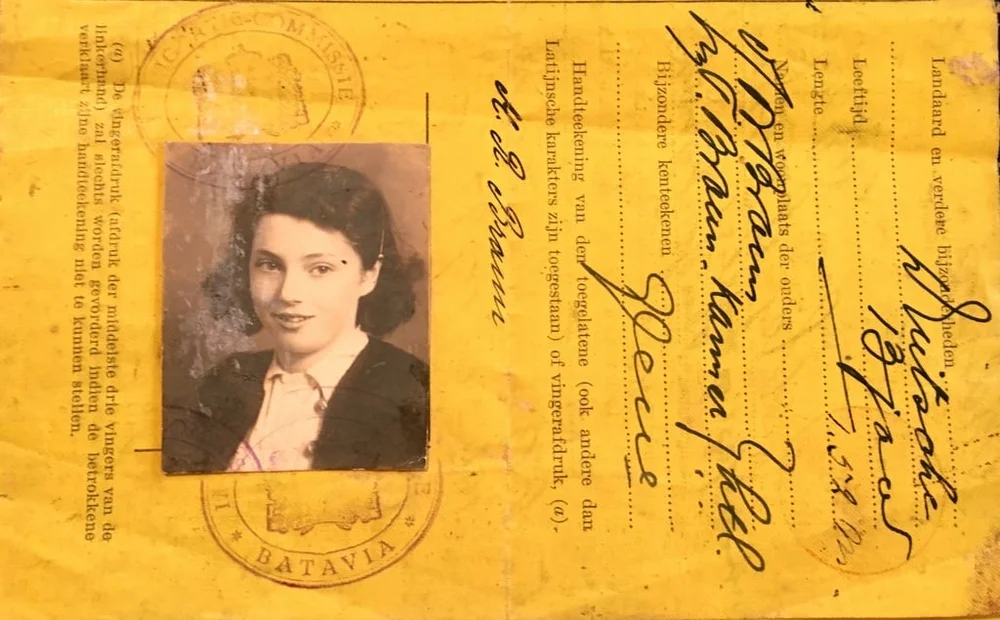 Landaard en verdere bijzonderheden
Duitsche
Leeftijd jaar
Lengte 1.52 M
Namen en woonplaats der ouders
Braun
Braun. Kanner
Bijzondere kenteekenen Geene
Handteekening van den toegelatene (ook andere dan
Latijnsche karakters zijn toegestaan) of vingerafdruk, (a).
Braun
COMMISSIE
* BATAVIA *
(a) De vingerafdruk (afdruk der middelste drie vingers van de
linkerhand) zal slechts worden gevorderd indien de betrokkene
verklaart zijne handteekening niet te kunnen stellen.